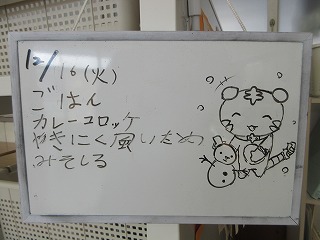 12/16(火)
ごはん
カレーコロッケ
やきにく風いため
みそしる